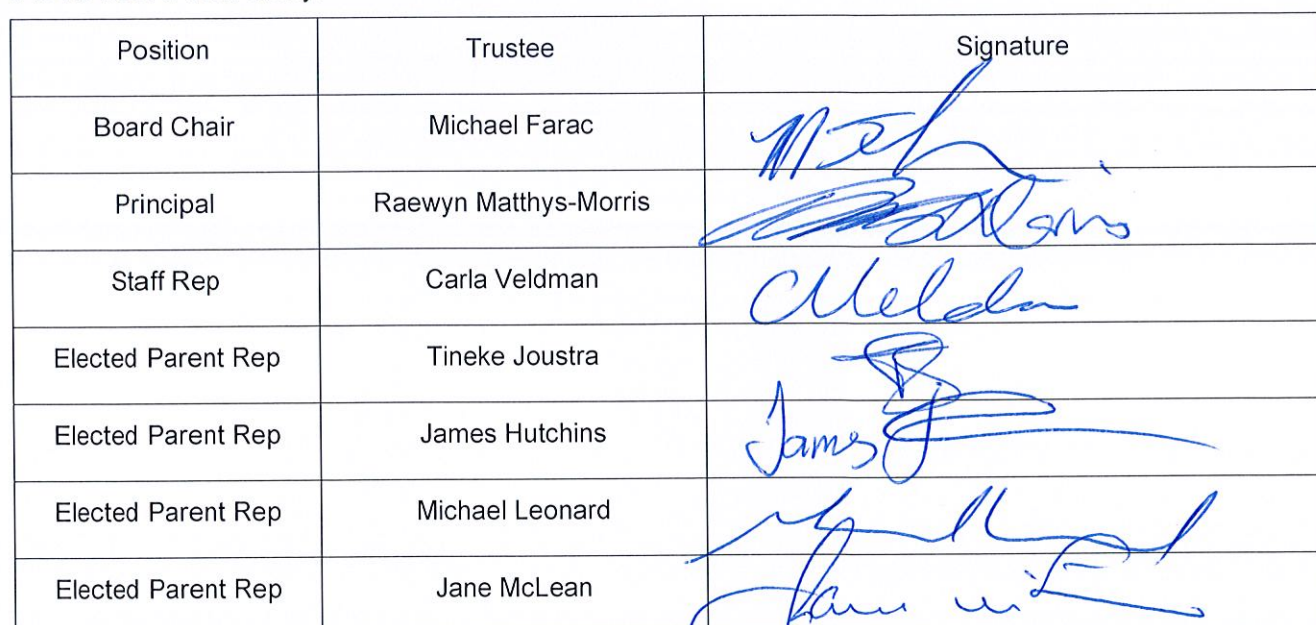 Position Trustee Signature
Board Chair Michael Farac
Principal Raewyn Matthys-Morris
Staff Rep Carla Veldman
Elected Parent Rep Tineke Joustra
Elected Parent Rep James Hutchins James
Elected Parent Rep Michael Leonard
Elected Parent Rep Jane McLean